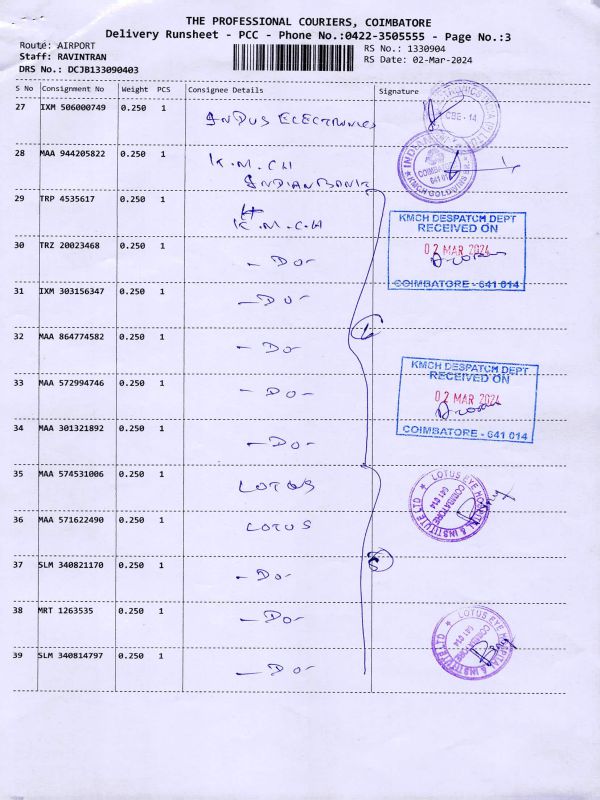 THE PROFESSIONAL COURIERS, COIMBATORE
Delivery Runsheet - PCC - Phone No.:0422-3505555 - Page No.:3
Route: AIRPORT
Staff: RAVINTRAN
DRS No.: DCJB133090403
RS No.: 1330904
RS Date: 02-Mar-2024
S No Consignment No Weight PCS Consignee Details Signature
27 IXM 506000749 0.250 1 INDUS ELECTRONICS
CBE - 14
28 MAA 944205822 0.250 1 K.M.CH
INDIAN BANK
INDIAN BANK
COIMBATORE
641 014
KMCH GOLDWINS
29 TRP 4535617 0.250 1 K.M.C.H
KMCH DESPATCH DEPT
RECEIVED ON
02 MAR 2024
COIMBATORE - 641 014
30 TRZ 20023468 0.250 1 - Do -
31 IXM 303156347 0.250 1 - Do -
32 MAA 864774582 0.250 1 - Do -
33 MAA 572994746 0.250 1 - Do -
KMCH DESPATCH DEPT
RECEIVED ON
02 MAR 2024
COIMBATORE - 641 014
34 MAA 301321892 0.250 1 - Do -
35 MAA 574531006 0.250 1 LOTUS
LOTUS EYE HOSPITAL & INSTITUTE LTD
COIMBATORE
641 014
36 MAA 571622490 0.250 1 LOTUS
37 SLM 340821170 0.250 1 - Do -
38 MRT 1263535 0.250 1 - Do -
LOTUS EYE HOSPITAL & INSTITUTE LTD
COIMBATORE
641 014
39 SLM 340814797 0.250 1 - Do -